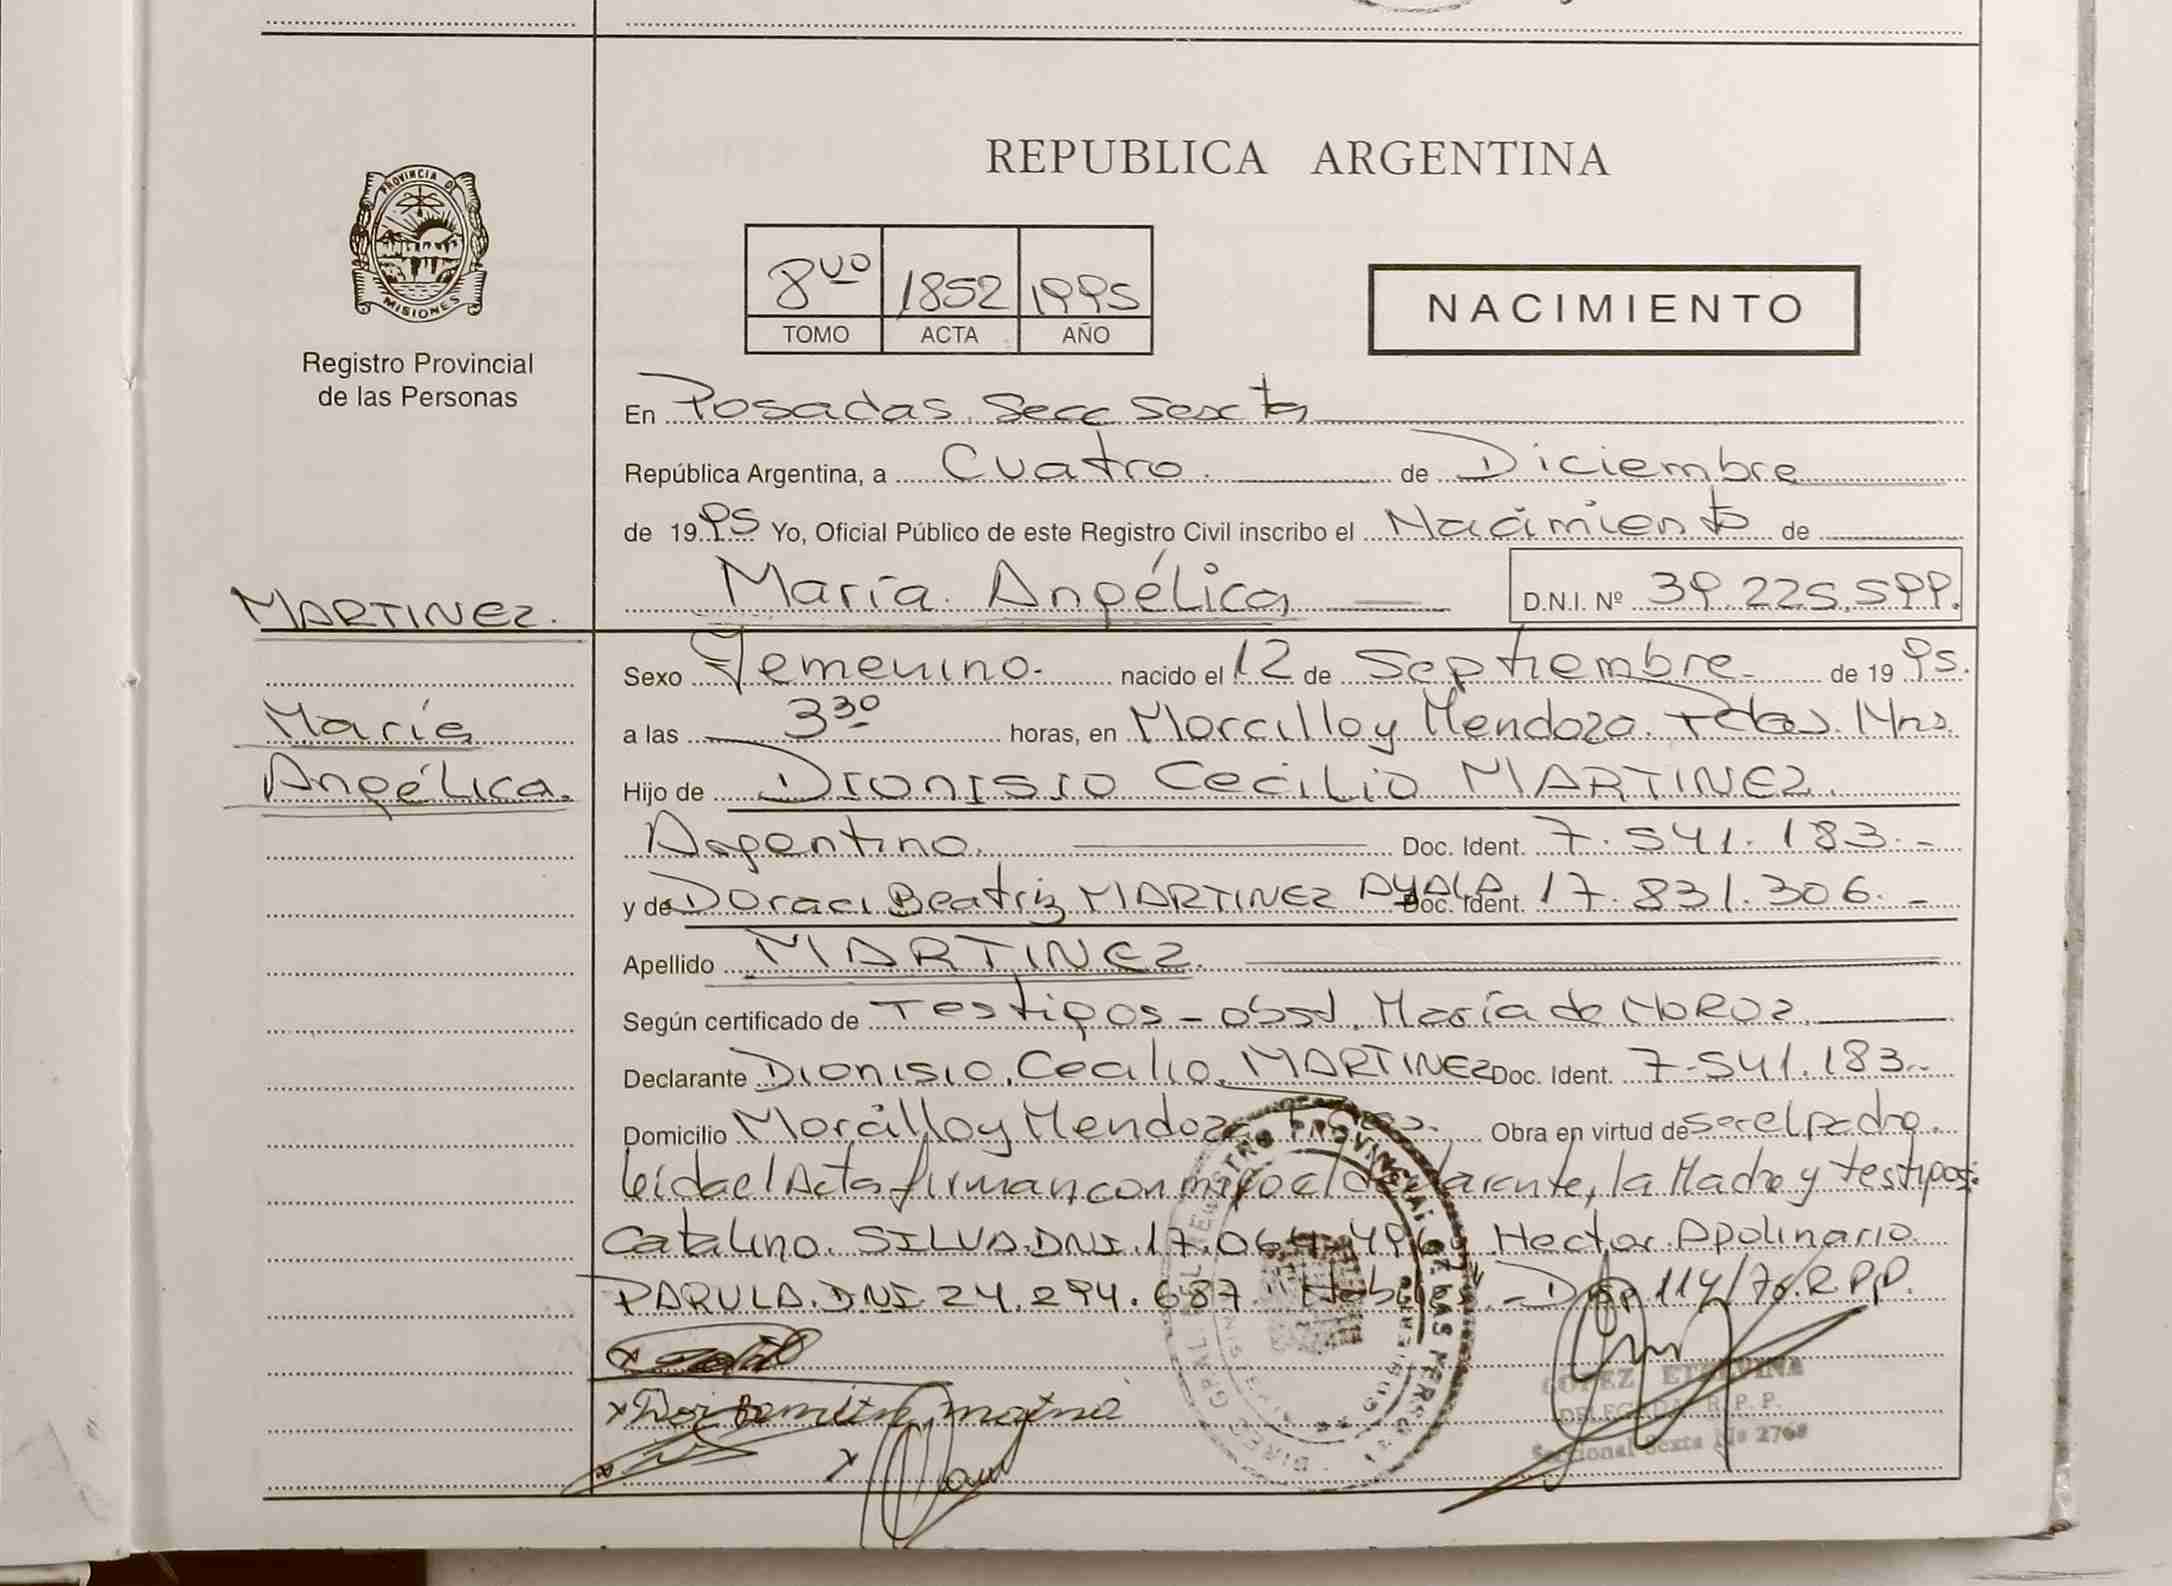 REPUBLICA ARGENTINA
PROVINCIA DE
MISIONES
Registro Provincial
de las Personas
8vo 1852 1995
TOMO ACTA AÑO
NACIMIENTO
En Posadas. Secc Sexta
República Argentina, a Cuatro. de Diciembre
de 1995 Yo, Oficial Público de este Registro Civil inscribo el Nacimiento de
María Angélica D.N.I. Nº 39.225.599.
MARTINEZ.
María
Angélica.
Sexo Femenino. nacido el 12 de Septiembre de 1995.
a las 3 30 horas, en Morcillo y Mendoza. Pdas. Mns.
Hijo de Dionisio Cecilio MARTINEZ.
Argentino. Doc. Ident. 7.541.183.-
y de Doraci Beatriz MARTINEZ AYALA Doc. Ident. 17.831.306.-
Apellido MARTINEZ.
Según certificado de Testigos - obst. María de MOROZ.
Declarante Dionisio Cecilio MARTINEZ Doc. Ident. 7.541.183.-
Domicilio Morcillo y Mendoza Obra en virtud de ser el padre.
leida el Acta firman conmigo el declarante, la Madre y testigos:
Catalino SILVA. DNI. 17.064.496 Hector Apolinario
PARULA. DNI. 24.294.687. - Disp 114/78. R.P.P.
DIREC GRAL DEL REGISTRO PROVINCIAL DE LAS PERSONAS
MISIONES
LOPEZ
DELEGADA R. P. P.
Seccional Sexta Nº 2768